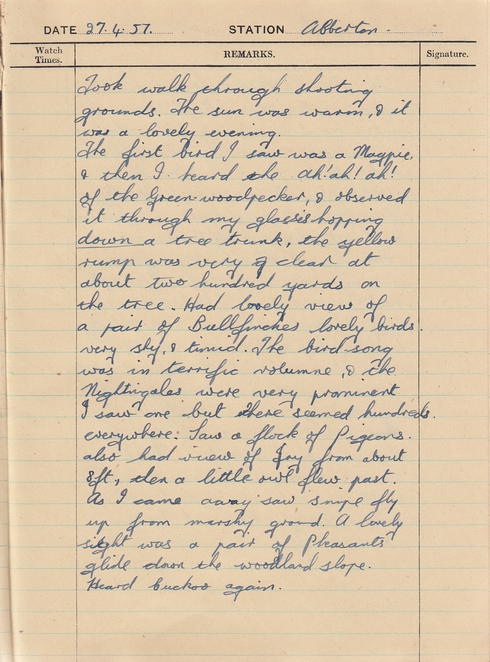 DATE 27.4.57. STATION Abberton.
Watch Times. REMARKS. Signature.
Took walk through shooting
grounds. The sun was warm, & it
was a lovely evening.
The first bird I saw was a Magpie,
& then I heard the ah! ah! ah!
of the Green woodpecker, & observed
it through my glasses hopping
down a tree trunk, the yellow
rump was very clear at
about two hundred yards on
the tree. Had lovely view of
a pair of Bullfinches lovely birds.
very shy, & timid. The bird song
was in terrific volumne, & the
Nightingales were very prominent
I saw one but there seemed hundreds.
everywhere. Saw a flock of Pigeons.
also had view of Jay from about
8ft, then a little owl flew past.
As I came away saw snipe fly
up from marshy ground. A lovely
sight was a pair of Pheasants
glide down the woodland slope.
Heard cuckoo again.